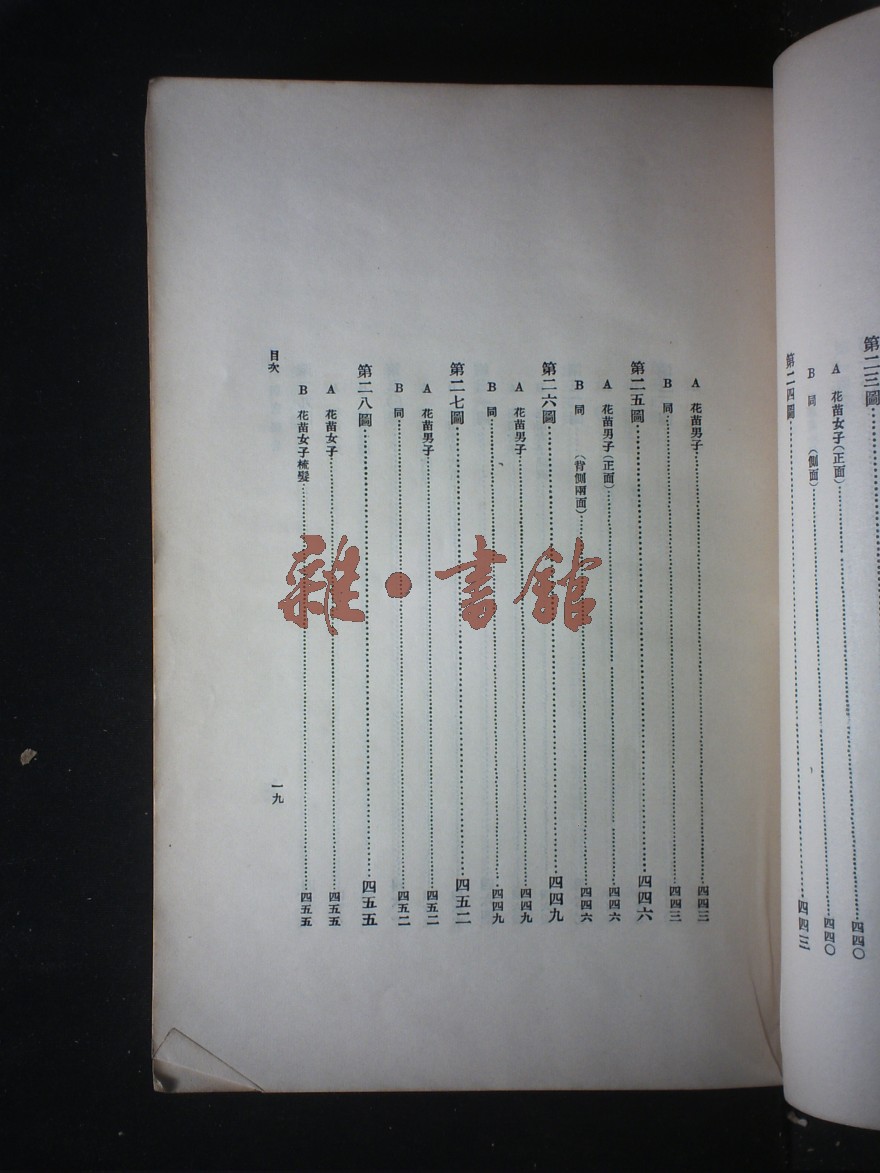 第二三圖
A 花苗女子(正面)………四四〇
B 同 (側面)………四四〇
第二四圖………四四三
A 花苗男子………四四三
B 同………四四三
第二五圖………四四六
A 花苗男子(正面)………四四六
B 同 (背側兩面)………四四六
第二六圖………四四九
A 花苗男子………四四九
B 同………四四九
第二七圖………四五二
A 花苗男子………四五二
B 同………四五二
第二八圖………四五五
A 花苗女子………四五五
B 花苗女子梳髮………四五五
目次
一九
雜·書館